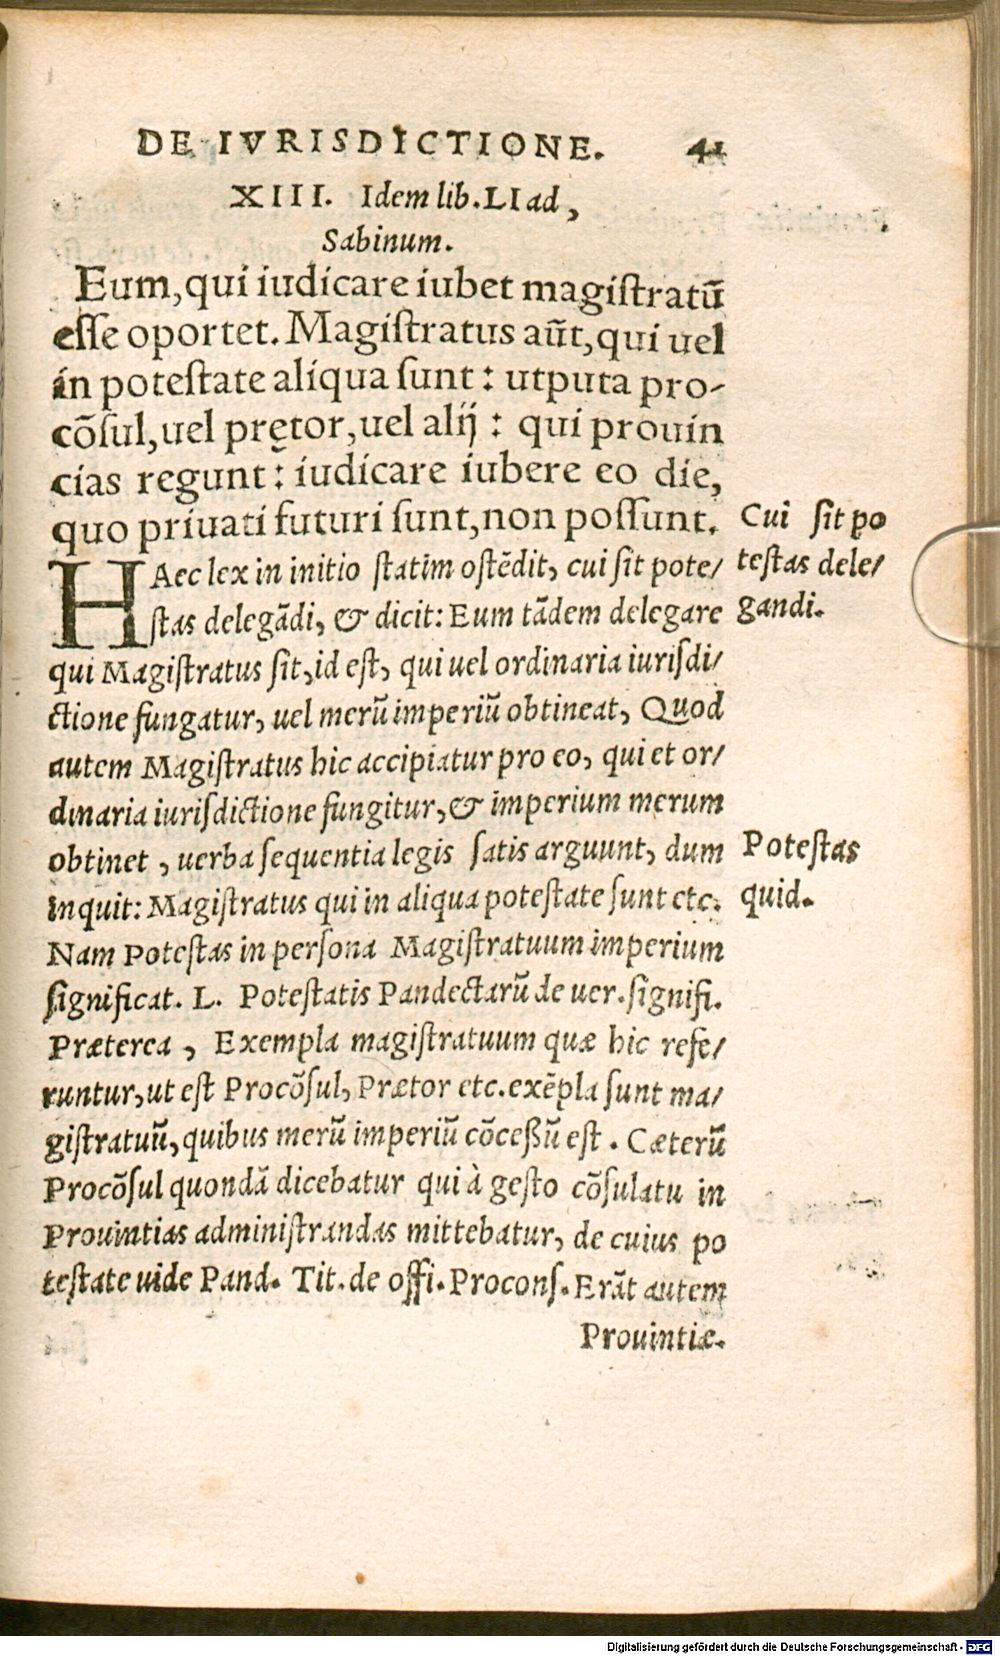 DE IVRISDICTIONE. 41
XIII. Idem lib. LI ad,
Sabinum.
Eum, qui iudicare iubet magiſtratū
eſſe oportet. Magiſtratus aūt, qui uel
in poteſtate aliqua ſunt: utputa pro-
cōſul, uel prętor, uel alij: qui prouin
cias regunt: iudicare iubere eo die,
quo priuati futuri ſunt, non poſſunt.
Cui ſit po
teſtas dele/
gandi.
HAec lex in initio ſtatim oſtēdit, cui ſit pote/
ſtas delegādi, & dicit: Eum tādem delegare
qui Magiſtratus ſit, id eſt, qui uel ordinaria iuriſdi/
ctione fungatur, uel merū imperiū obtineat, Quod
autem Magiſtratus hic accipiatur pro eo, qui et or/
dinaria iuriſdictione fungitur, & imperium merum
obtinet, uerba ſequentia legis ſatis arguunt, dum
inquit: Magiſtratus qui in aliqua poteſtate ſunt etc.
Poteſtas
quid.
Nam Poteſtas in perſona Magiſtratuum imperium
ſignificat. L. Poteſtatis Pandectarū de uer. ſignifi.
Præterea, Exempla magiſtratuum quæ hic refe/
runtur, ut eſt Procōſul, Prætor etc. exēpla ſunt ma/
giſtratuū, quibus merū imperiū cōceßū eſt. Cæterū
Procōſul quondā dicebatur qui à geſto cōſulatu in
Prouintias adminiſtrandas mittebatur, de cuius po
teſtate uide Pand. Tit. de offi. Proconſ. Erāt autem
Prouintiæ.
Digitalisierung gefördert durch die Deutsche Forschungsgemeinschaft - DFG